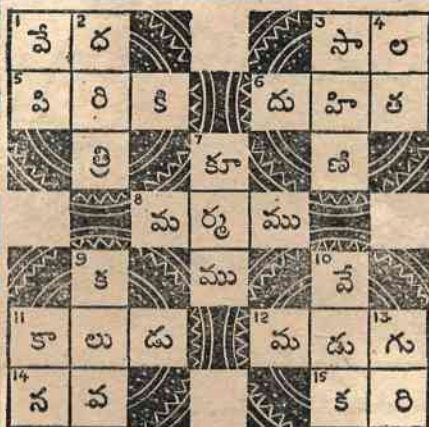 1 పే 2 ధ 3 సా 4 ల
5 పి రి కి 6 దు హి త
త్రి 7 కూ ణి
8 మ ర్మ ము
9 క ము 10 వే
11 కా లు డు 12 మ డు 13 గు
14 న వ 15 క రి